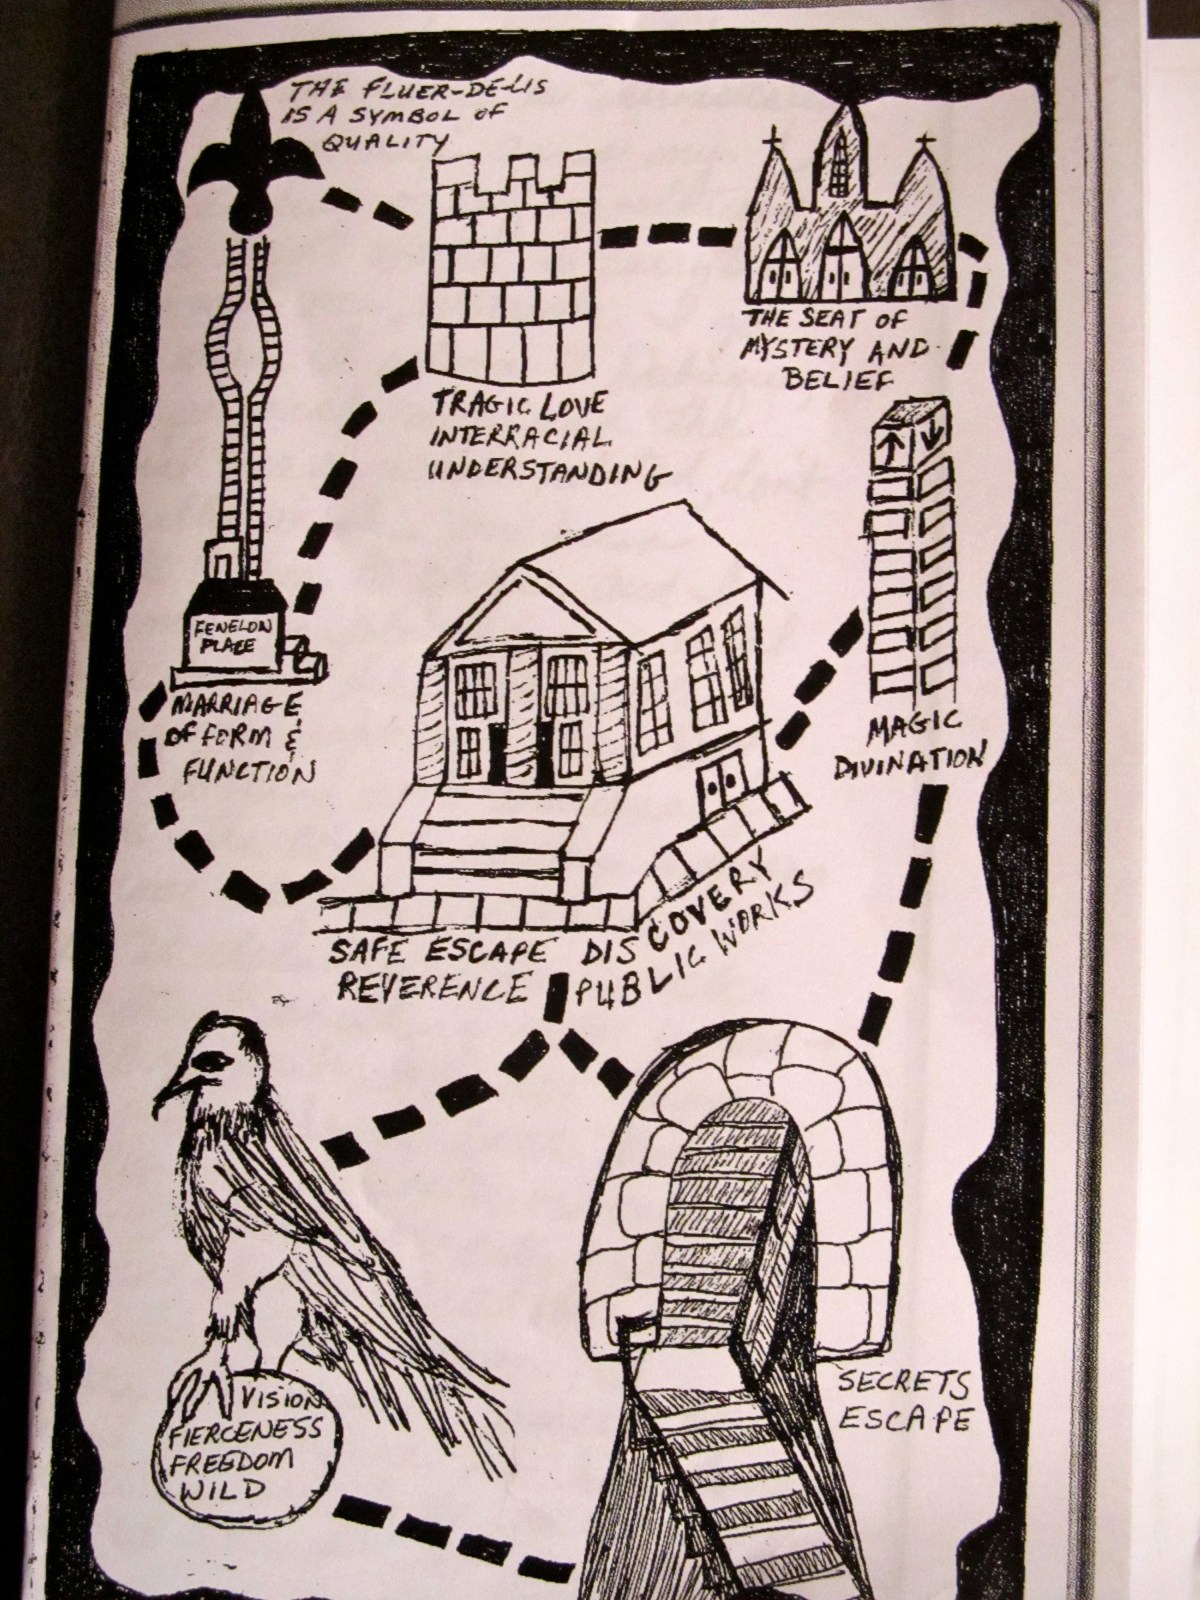 THE FLUER-DE-LIS
IS A SYMBOL OF
QUALITY
THE SEAT OF
MYSTERY AND
BELIEF
TRAGIC LOVE
INTERRACIAL
UNDERSTANDING
FENELON
PLACE
MARRIAGE
OF FORM &
FUNCTION
MAGIC
DIVINATION
SAFE ESCAPE DISCOVERY
REVERENCE PUBLIC WORKS
VISION
FIERCENESS
FREEDOM
WILD
SECRETS
ESCAPE